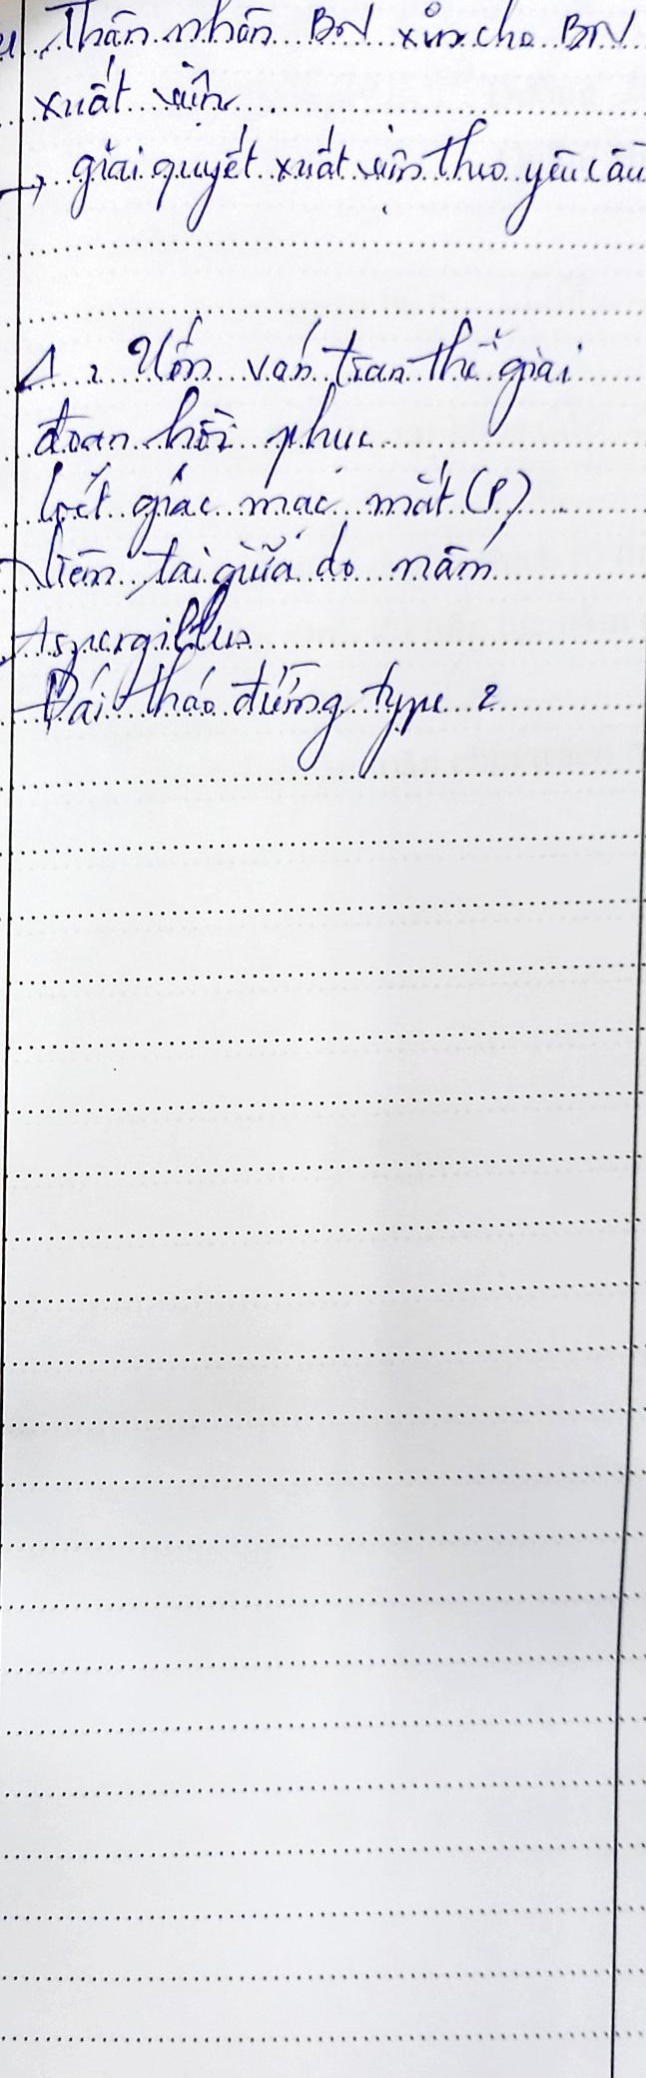 Thân nhân BN xin cho BN
xuất viện
→ giải quyết xuất viện theo yêu cầu
Δ: Uốn ván toàn thể giai
đoạn hồi phục
Loét giác mạc mắt (P)
Viêm tai giữa do nấm
Aspergillus
Đái tháo đường type 2